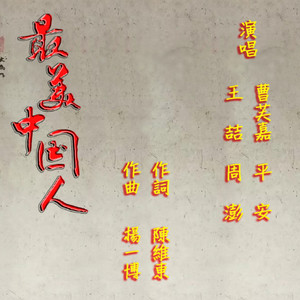 最美中国人
演唱
曹芙嘉 平安
王喆 周澎
作詞 陳維東
作曲 楊一博